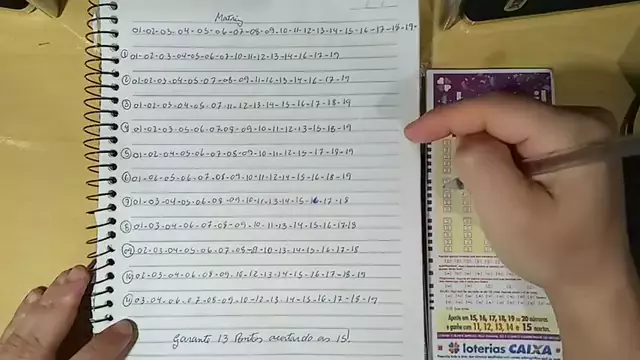 Matriz
01-02-03-04-05-06-07-08-09-10-11-12-13-14-15-16-17-18-19-
① 01-02-03-04-05-06-07-10-11-12-13-14-16-17-19
② 01-02-03-04-05-07-08-09-11-16-13-14-16-17-19
③ 01-02-03-04-05-07-11-12-13-14-15-16-17-18-19
④ 01-02-03-04-05-06-07-08-09-10-11-12-13-15-18-19
⑤ 01-02-04-05-06-07-08-09-10-11-12-15-17-18-19
⑥ 01-02-05-06-07-08-09-10-11-12-14-15-16-18-19
⑦ 01-03-04-05-06-08-09-10-11-13-14-15-16-17-18
⑧ 01-03-04-06-07-08-09-10-11-13-14-15-16-17-18
⑨ 02-03-04-05-06-07-08-9-10-13-14-15-16-17-18
⑩ 02-03-04-06-08-09-10-12-13-14-15-16-17-18-19
⑪ 03-04-06-07-08-09-10-12-13-14-15-16-17-18-19
Garante 13 Pontos acertando as 15!
Aposte em 15, 16, 17, 18, 19 ou 20 números
e ganhe com 11, 12, 13, 14 e 15 acertos.
loterias CAIXA